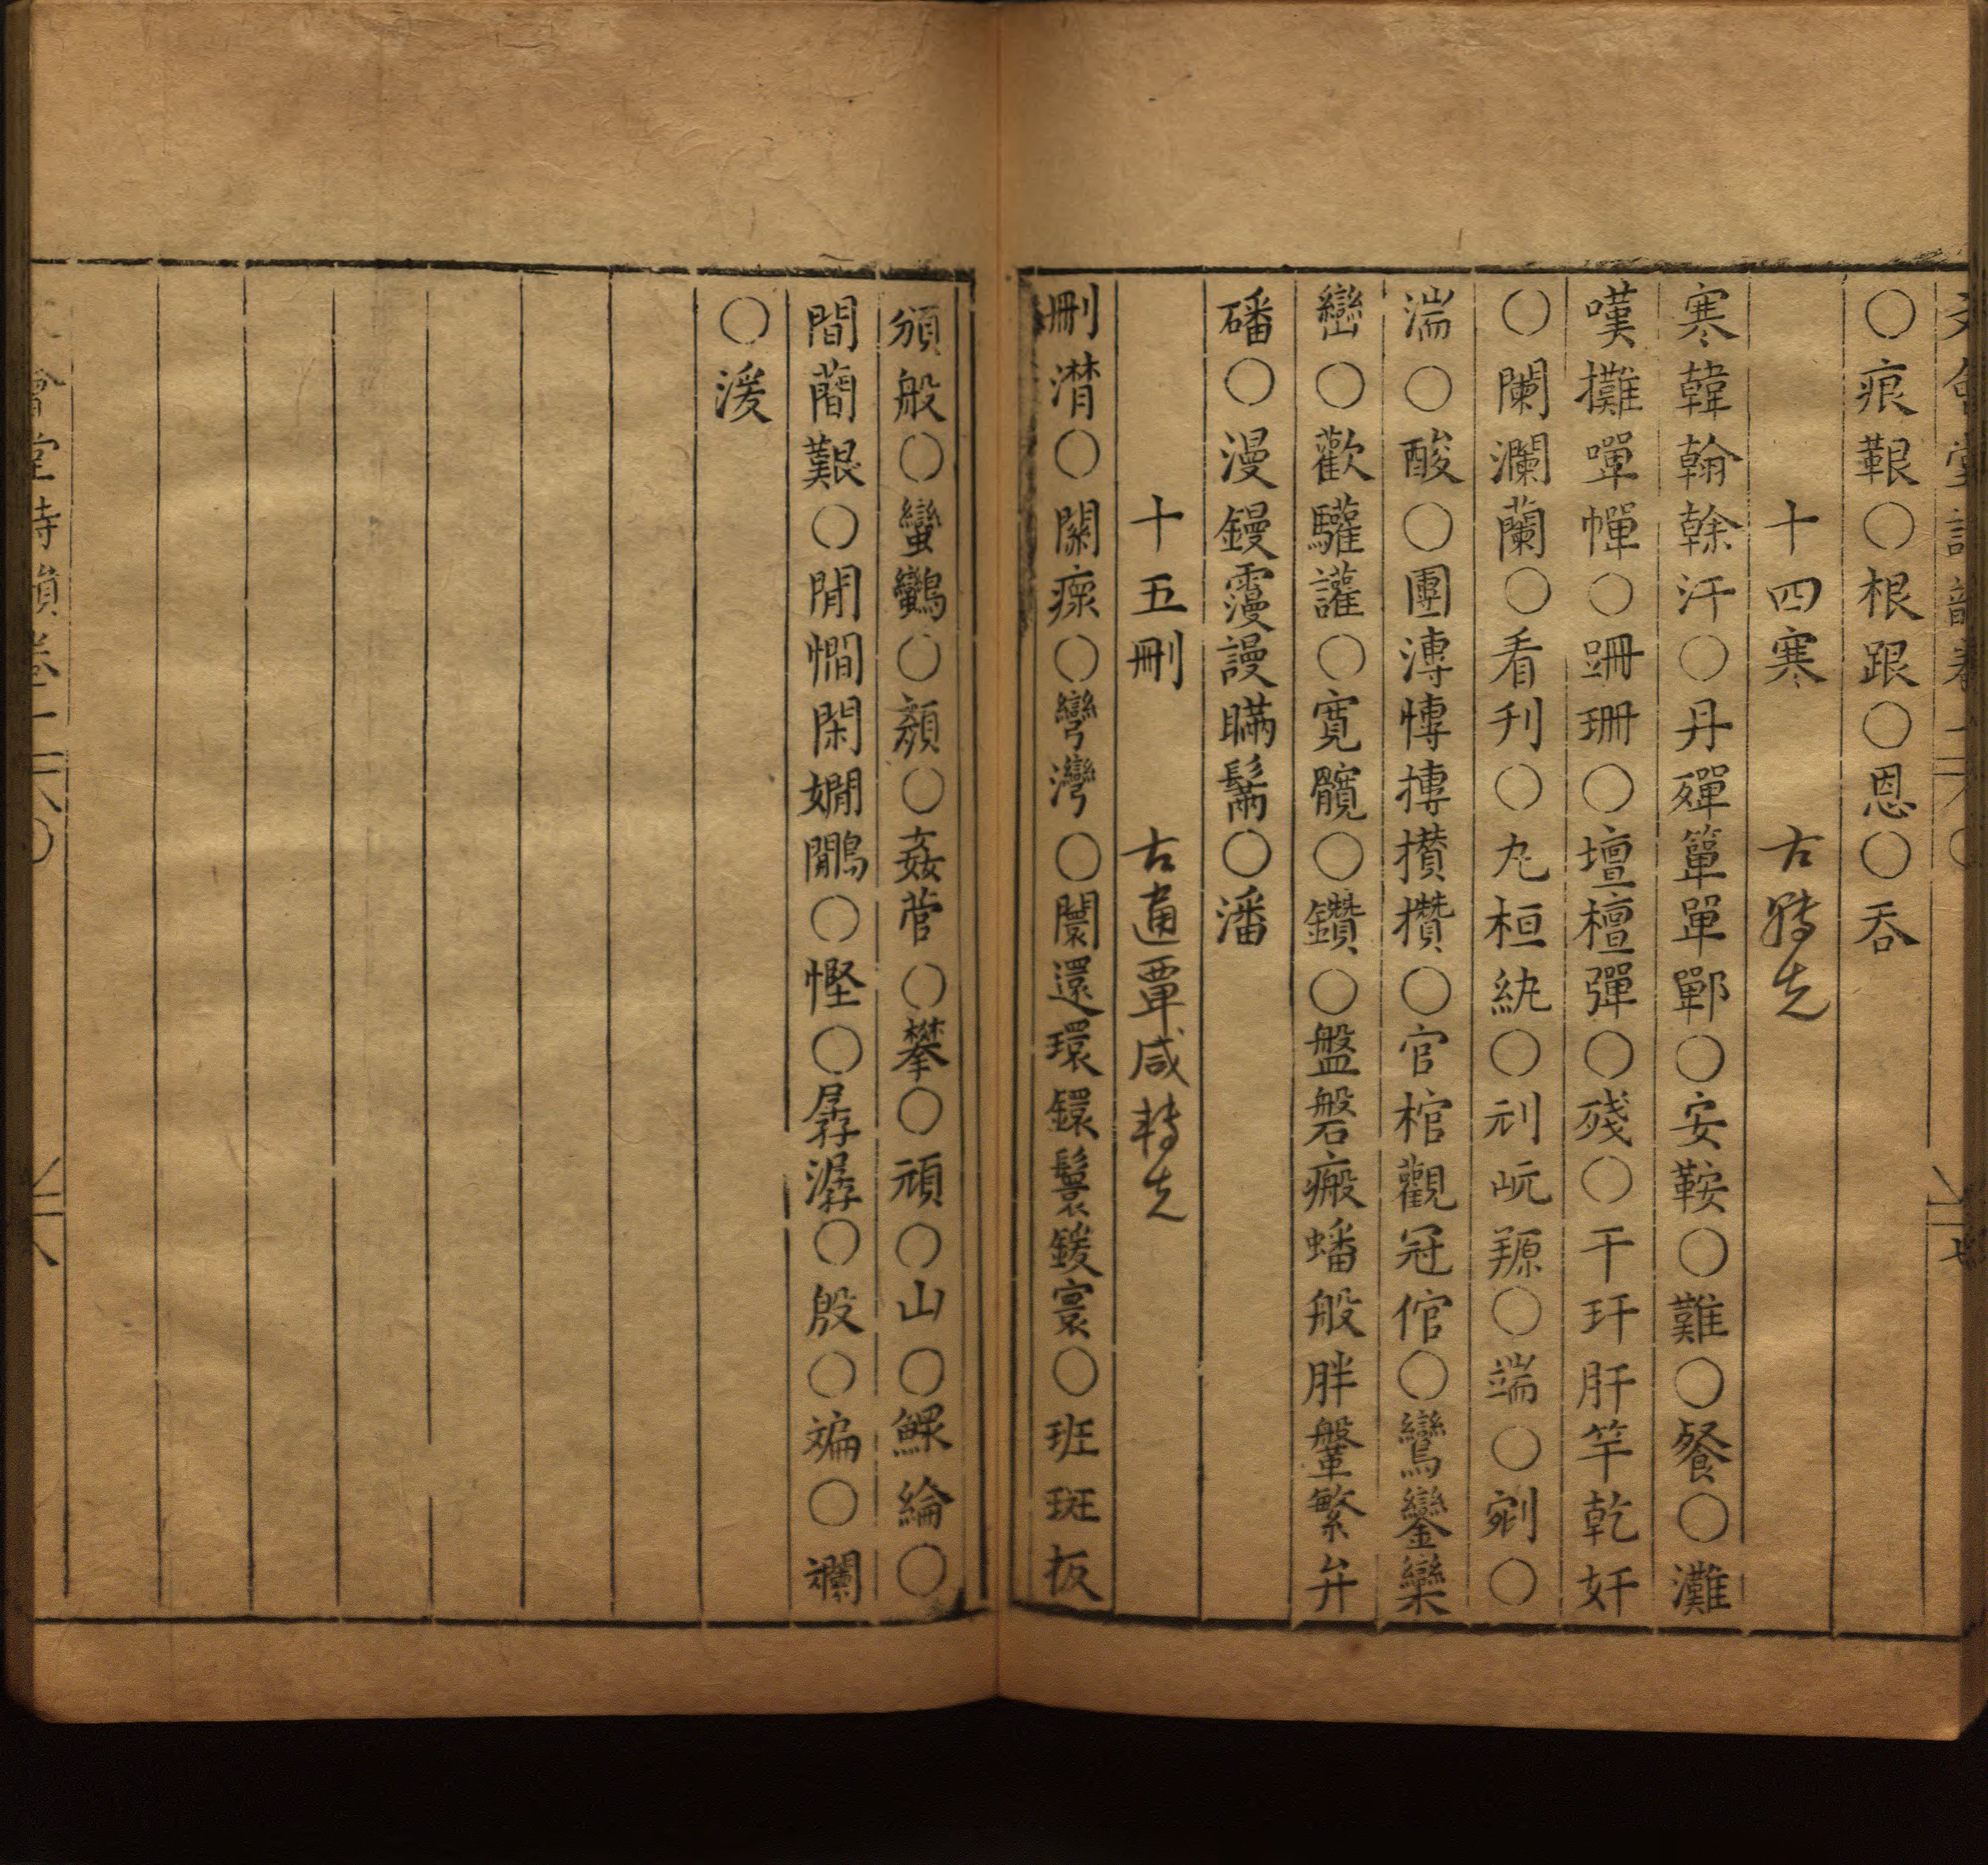 ○痕艱○根跟○恩○吞
十四寒 古轉先
寒韓翰榦汗○丹殫簞單鄲○安鞍○難○餐○灘
嘆攤嘽幝○跚珊○壇檀彈○殘○干玕肝竿乾奸
○闌瀾蘭○看刋○丸桓紈○刓岏羱○端○剜○
湍○酸○團漙慱摶攢欑○官棺觀冠倌○鸞鑾欒
巒○歡驩讙○寬髖○鑽○盤磐瘢蟠般胖鞶繁弁
磻○漫鏝霿謾瞞鬗○潘
十五刪 古通覃咸轉先
刪潸○關瘝○彎灣○闤還環鐶鬟鍰寰○班斑扳
頒般○蠻鸞○顏○姦菅○攀○頑○山○鰥綸○
間蕳艱○閒憪閑嫺鷳○慳○孱潺○殷○斒○斕
○湲
會堂詩韻卷上